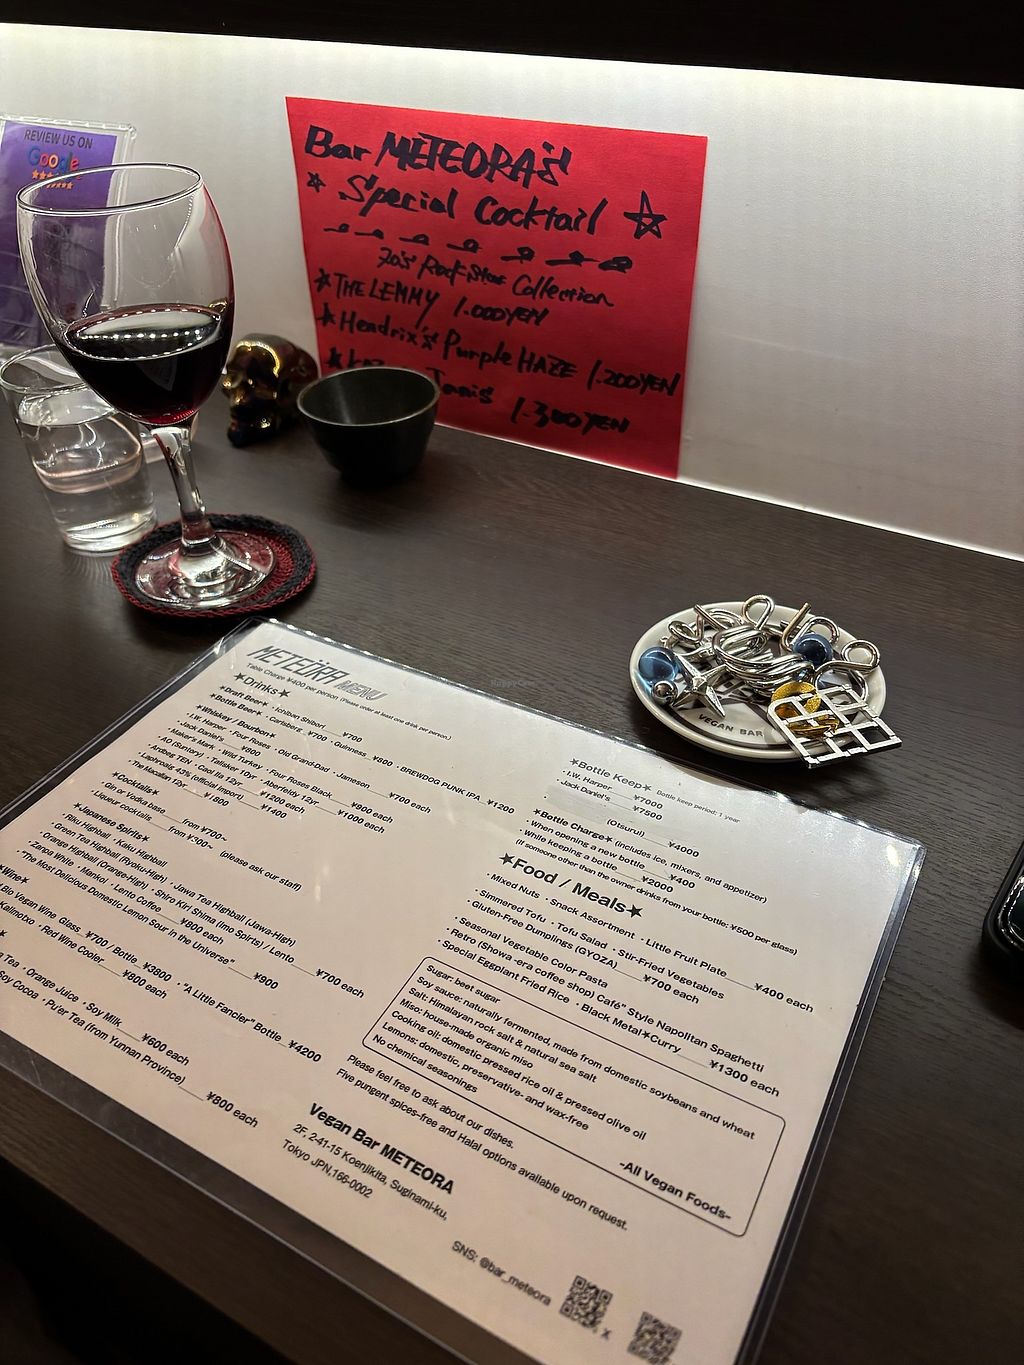 REVIEW US ON
Google
Bar METEORA's
Special Cocktail
70's Rock Star Collection
THE LEMMY 1.000YEN
Hendrix's Purple HAZE 1.200YEN
Janis 1.300YEN
VEGAN BAR
METEÖRA MENU
Table Charge ¥400 per person (Please order at least one drink per person.)
★Drinks★
★Draft Beer★ ・Ichiban Shibori ¥700
★Bottle Beer★ ・Carlsberg ¥700 ・Guinness ¥800 ・BREWDOG PUNK IPA ¥1200
★Whiskey / Bourbon★
・I.W. Harper ・Four Roses ・Old Grand-Dad ・Jameson ¥700 each
・Jack Daniel's ¥800
・Maker's Mark ・Wild Turkey ・Four Roses Black ¥900 each
・AO (Suntory) ・Talisker 10yr ・Aberfeldy 12yr ¥1000 each
・Ardbeg TEN ・Caol Ila 12yr ¥1200 each
・Laphroaig 43% (official import) ¥1400
・The Macallan 12yr ¥1800
★Cocktails★
・Gin or Vodka base from ¥700~
・Liqueur cocktails from ¥500~ (please ask our staff)
★Japanese Spirits★
・Riku Highball ・Kaku Highball
・Green Tea Highball (Ryoku-High) ・Jawa Tea Highball (Jawa-High)
・Orange Highball (Orange-High) ・Shiro Kiri Shima (Imo Spirits) / Lento ¥700 each
・Zanpa White ・Mankoi ・Lento Coffee ¥800 each
・"The Most Delicious Domestic Lemon Sour in the Universe" ¥900
★Wine★
Bio Vegan Wine Glass ¥700 / Bottle ¥3800 ・"A Little Fancier" Bottle ¥4200
Kalimotxo ・Red Wine Cooler ¥800 each
Tea ・Orange Juice ・Soy Milk ¥600 each
Soy Cocoa ・Pu'er Tea (from Yunnan Province) ¥800 each
★Bottle Keep★ Bottle keep period: 1 year
・I.W. Harper ¥7000
・Jack Daniel's ¥7500
(Otsurui) ¥4000
★Bottle Charge★ (includes ice, mixers, and appetizer)
・When opening a new bottle ¥400
・While keeping a bottle ¥2000
(If someone other than the owner drinks from your bottle: ¥500 per glass)
★Food / Meals★
・Mixed Nuts ・Snack Assortment ・Little Fruit Plate ¥400 each
・Simmered Tofu ・Tofu Salad ・Stir-Fried Vegetables
・Gluten-Free Dumplings (GYOZA) ¥700 each
・Seasonal Vegetable Color Pasta
・Retro (Showa-era coffee shop) Café" Style Napolitan Spaghetti
・Special Eggplant Fried Rice ・Black Metal★Curry ¥1300 each
Sugar: beet sugar
Soy sauce: naturally fermented, made from domestic soybeans and wheat
Salt: Himalayan rock salt & natural sea salt
Miso: house-made organic miso
Cooking oil: domestic pressed rice oil & pressed olive oil
Lemons: domestic, preservative- and wax-free
No chemical seasonings
-All Vegan Foods-
Please feel free to ask about our dishes.
Five pungent spices-free and Halal options available upon request.
Vegan Bar METEORA
2F, 2-41-15 Koenjikita, Suginami-ku,
Tokyo JPN,166-0002
SNS: @bar_meteora
X